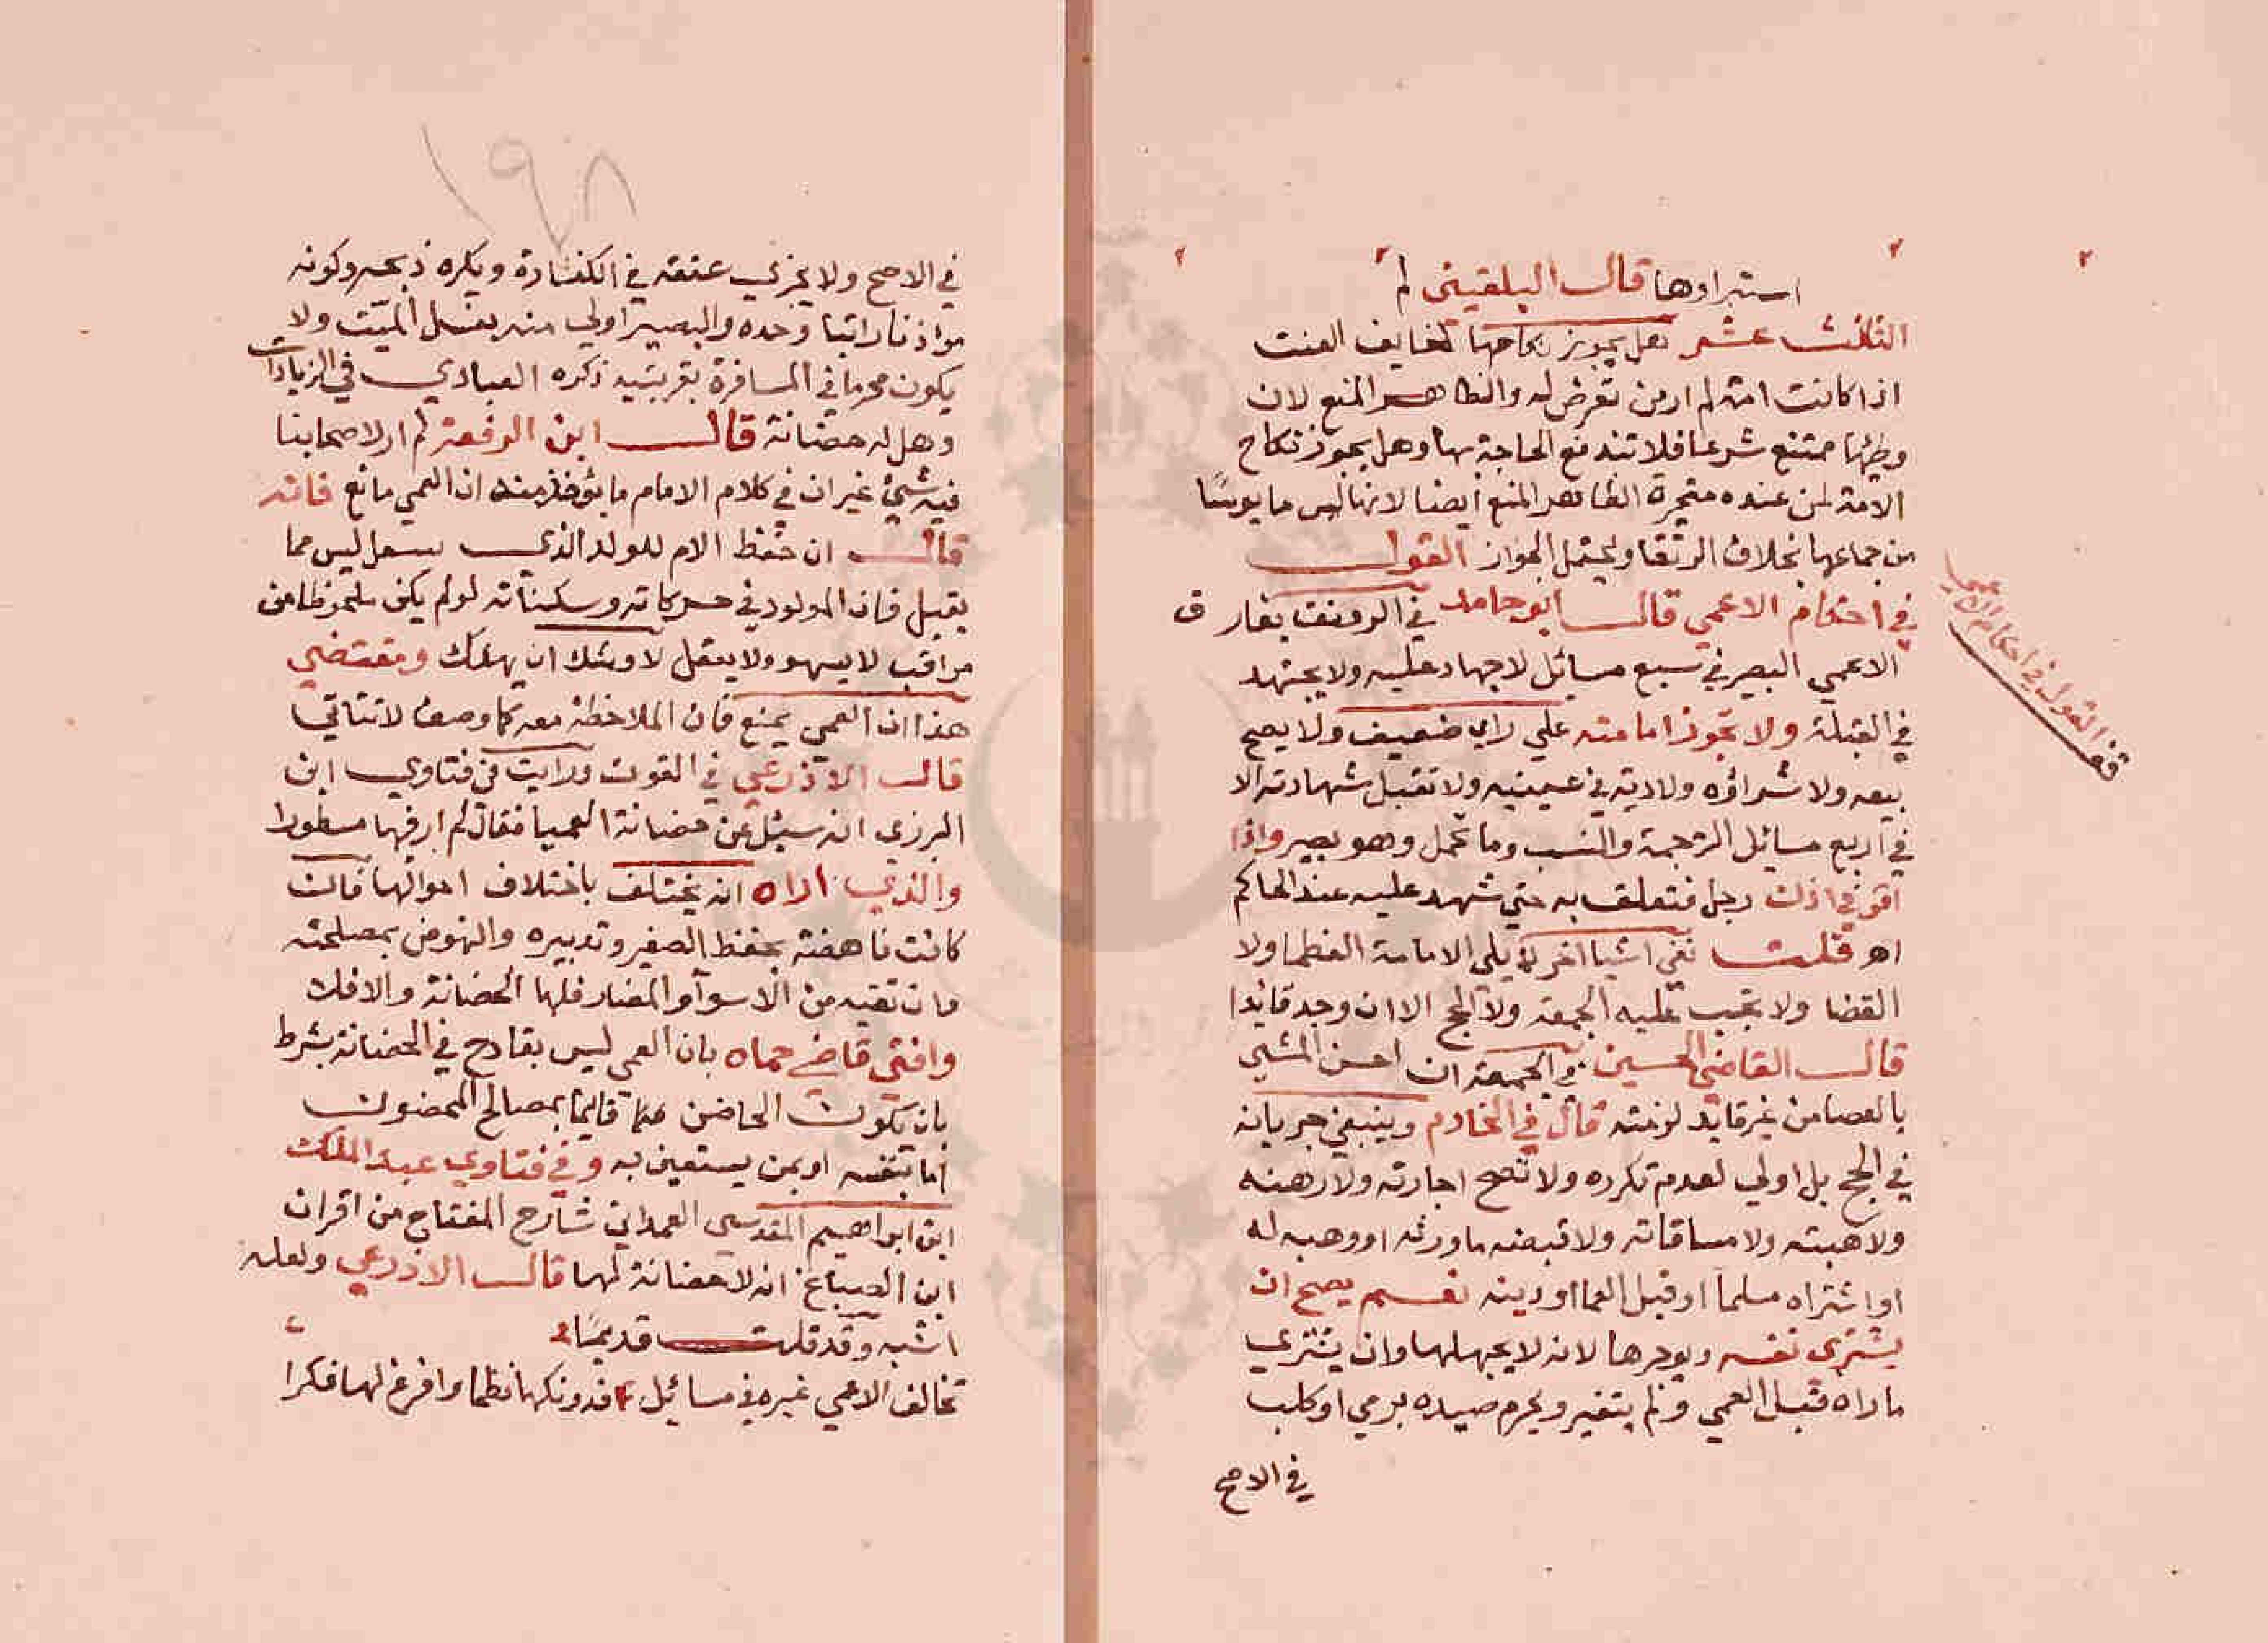 استبراوها قال البلقيني لم
الثالث عشر هل يجوز نكاحها لخايف العنت
اذا كانت امة لم ار من تعرض له والظاهر المنع لان
وطئها ممتنع شرعا فلا تندفع الحاجة بها وهل يجوز نكاح
الامة لمن عنده متحيرة الظاهر المنع ايضا لانها ليس مايوسًا
من جماعها بخلاف الرتقا ويحتمل الجواز القول
في احكام الاعمي قال ابو حامد في الرونق يفارق
الاعمي البصير في سبع مسائل لا جهاد عليه ولا يجتهد
في القبلة ولا تجوز امامته علي راي ضعيف ولا يصح
بيعه ولا شراؤه ولا دية في عينيه ولا تقبل شهادته الا
في اربع مسائل الترجمة والنسب وما تحمل وهو بصير واذا
اقر في اذن رجل فتعلق به حتي شهد عليه عند الحاكم
اهـ قلت بقي اشيا اخر لا يلي الامامة العظما ولا
القضا ولا تجب عليه الجمعة ولا الحج الا ان وجد قايدا
قال القاضي الحسين في الجمعة ان احسن المشي
بالعصا من غير قايد لزمته قال في الخادم وينبغي جريانه
في الحج بل اولي لعدم تكرره ولا تصح اجارته ولا رهنه
ولا هبته ولا مساقاته ولا قبضه ما ورثه او وهب له
او اشتراه سلما او قبل العما او دينه نعم يصح ان
يشتري نفسه ويوجرها لانه لا يجهلها وان يشتري
ما راه قبل العمي ولم يتغير ويحرم صيده برمي او كلب
في الاصح
قف القول في احكام الاعمي
١٩٨
في الاصح ولا يجزي عتقه في الكفارة ويكره ذبحه وكونه
مواذنا راتبا وحده والبصير اولي منه بغسل الميت ولا
يكون محرما في المسافرة بقريبته ذكره العبادي في الزيادات
وهل له حضانة قال ابن الرفعة لم ار لاصحابنا
فيه شيئ غير ان في كلام الامام ما يؤخذ منه ان العمي مانع فانه
قال ان حفظ الام للولد الذي ليس مما
يقبل فان المولود في حركاته وسكناته لو لم يكن ملحوظا من
مراقب لا يسهو ولا يغفل لاوشك ان يهلك ومقتضي
هذا ان العمي يمنع فان الملاحظة معه كما وصف لا تتاتي
قال الاذرعي في القوت ورايت في فتاوي ابن
البرزي انه سيئل عن حضانة العميا فقال لم ار فيها مسطورا
والذي اراه انه يختلف باختلاف احوالها فان
كانت ناهضة بحفظ الصغير وتدبيره والنهوض بمصلحته
وان تقيه من الاسوآ والمضار فلها الحضانة والا فلا
وافتي قاضي حماه بان العمي ليس بقادح في الحضانة بشرط
بان يكون الحاضن قايما بمصالح المحضون
اما بنفسه او بمن يستعين به وفي فتاوي عبد الملك
ابن ابراهيم المقدسي الهمداني شارح المفتاح من اقران
ابن الصباغ انه لا حضانة لها قال الاذرعي ولعله
اشبه وقد قلت قديمًا
تخالف الاعمي غيره في مسائيل فدونكها نظما وافرغ لها فكرا